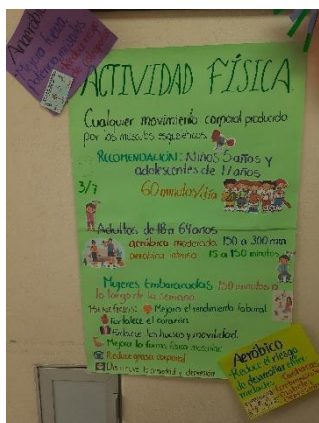 Anaeróbico
Mejora fuerza
Potencia muscular
ACTIVIDAD FÍSICA
Cualquier movimiento corporal producido
por los músculos esqueléticos.
RECOMENDACIÓN: Niños 5 años y
adolescentes de 17 años
3/7
60 minutos/día
Adultos de 18 a 64 años
aeróbica moderada 150 a 300 min
aeróbica intensa 75 a 150 minutos
Mujeres Embarazadas 150 minutos a
lo largo de la semana
Beneficios: Mejora el rendimiento laboral.
Fortalece el corazón
Fortalece los huesos y movilidad.
Mejora la forma física muscular
Reduce grasa corporal
Disminuye la ansiedad y depresión
Aeróbico
Reduce el riesgo
de desarrollar